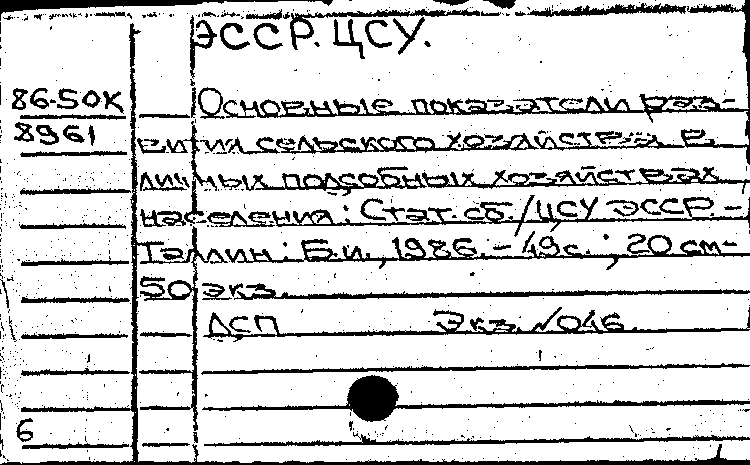 ЭССР. ЦСУ.
86-50К Основные показатели раз-
8961 вития сельского хозяйства в
личных подсобных хозяйствах
населения: Стат. сб./ЦСУ ЭССР.-
Таллин: Б.и., 1986.- 49с.; 20 см-
50 экз.
ДСП Экз. №046.
6